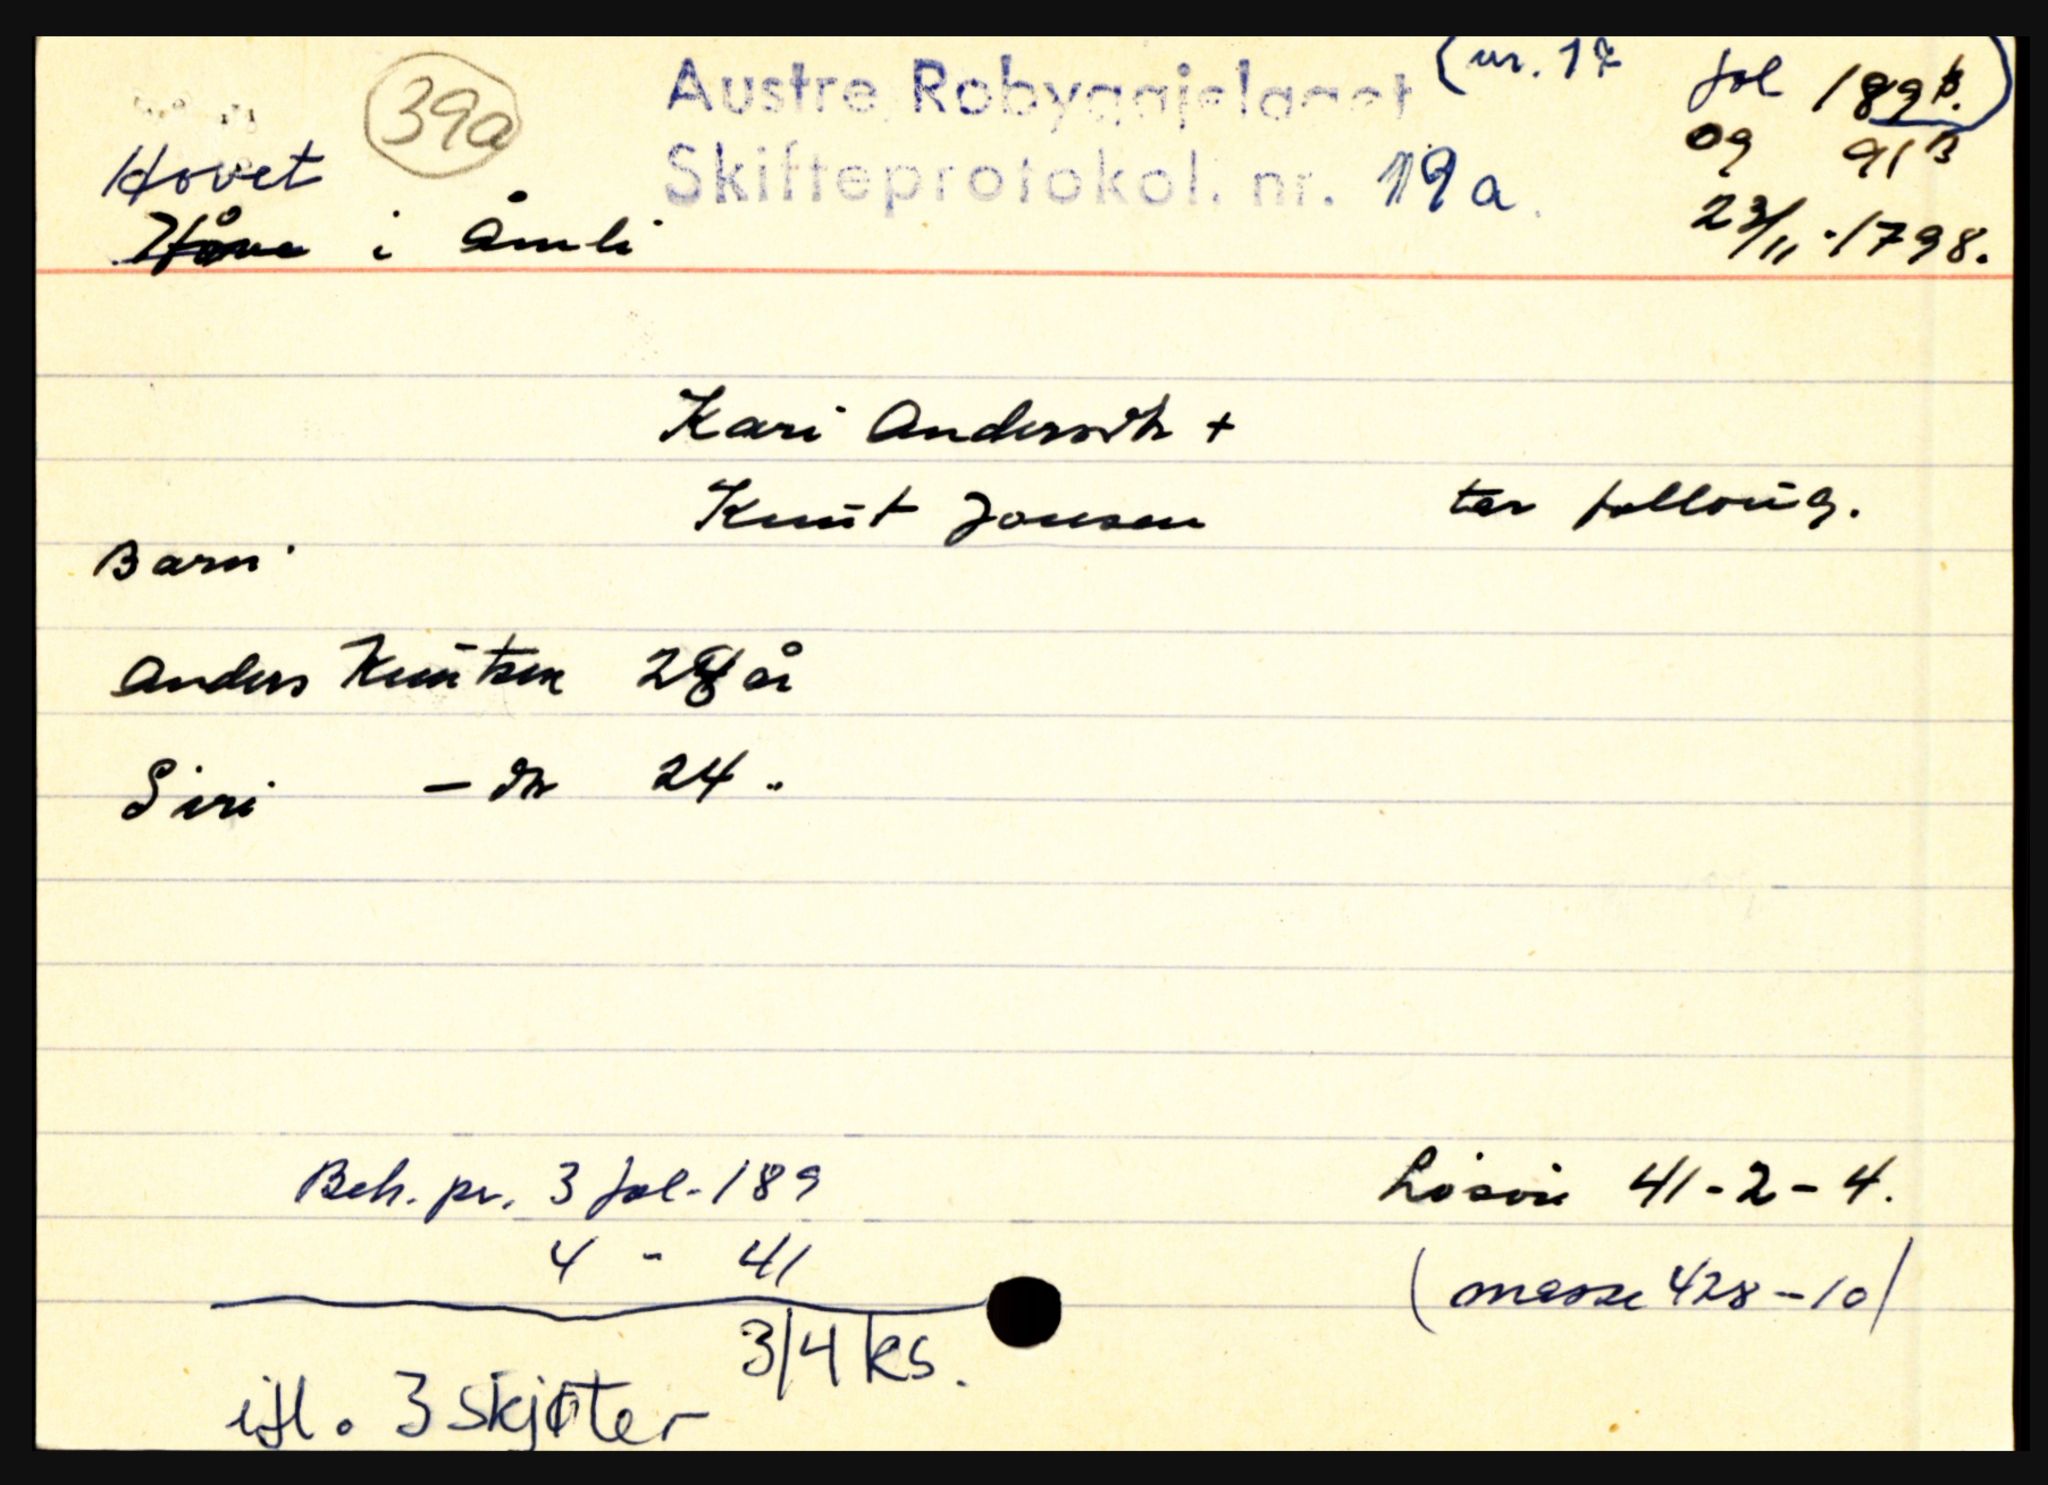 39a
Austre Robyggjelaget
(nr. 17 fol 189b.)
Skifteprotokol. nr. 19a.
og 91b
Hovet
Håve i Åmli
23/11-1798.
Kari Andersdtr +
Knut Jonsen
Barn
Anders Knutsen 28 år
Siri - dtr 24 "
Beh. pr. 3 fol-189
4 - 41
Løsøre 41-2-4.
(masse 428-10)
3/4 ks.
ifl. 3 skjøter